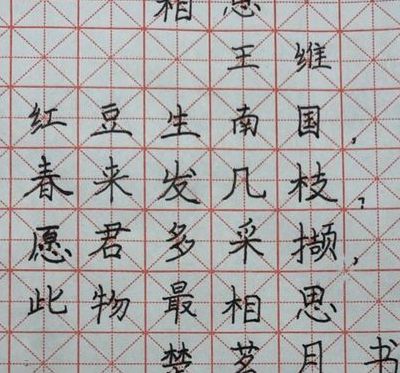 相思
王维
红豆生南国，
春来发几枝？
愿君多采撷，
此物最相思
楚茗月书